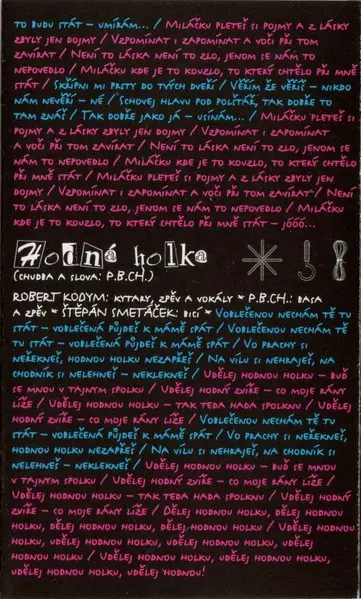 TO BUDU STÁT – UMÍRÁM... / MILÁČKU PLETEŠ SI POJMY A Z LÁSKY
ZBYLY JEN DOJMY / VZPOMÍNAT I ZAPOMÍNAT A VOČI PŘI TOM
ZAVÍRAT / NENÍ TO LÁSKA NENÍ TO ZLO, JENOM SE NÁM TO
NEPOVEDLO / MILÁČKU KDE JE TO KOUZLO, TO KTERÝ CHTĚLO PŘI MNĚ
STÁT / SKŘÍPNI MI PRSTY DO TVÝCH DVEŘÍ / VĚŘÍM ŽE VĚŘÍŠ – NIKDO
NÁM NEVĚŘÍ – NÉ / SCHOVEJ HLAVU POD POLŠTÁŘ, TAK DOBŘE TO
TAM ZNÁŠ / TAK DOBŘE JAKO JÁ – USÍNÁM... / MILÁČKU PLETEŠ SI
POJMY A Z LÁSKY ZBYLY JEN DOJMY / VZPOMÍNAT I ZAPOMÍNAT
A VOČI PŘI TOM ZAVÍRAT / NENÍ TO LÁSKA NENÍ TO ZLO, JENOM SE
NÁM TO NEPOVEDLO / MILÁČKU KDE JE TO KOUZLO, TO KTERÝ CHTĚLO
PŘI MNĚ STÁT / MILÁČKU PLETEŠ SI POJMY A Z LÁSKY ZBYLY JEN
DOJMY / VZPOMÍNAT I ZAPOMÍNAT A VOČI PŘI TOM ZAVÍRAT / NENÍ
TO LÁSKA NENÍ TO ZLO, JENOM SE NÁM TO NEPOVEDLO / MILÁČKU
KDE JE TO KOUZLO, TO KTERÝ CHTĚLO PŘI MNĚ STÁT – JÓÓÓ...
Hodná holka
(CHUDBA A SLOVA: P.B.CH.)
ROBERT KODYM: KYTARY, ZPĚV A VOKÁLY * P.B.CH.: BASA
A ZPĚV * ŠTĚPÁN SMETÁČEK: BICÍ * VOBLEČENOU NECHÁM TĚ TU
STÁT – VOBLEČENÁ PŮJDEŠ K MÁMĚ SPÁT / VOBLEČENOU NECHÁM TĚ
TU STÁT – VOBLEČENÁ PŮJDEŠ K MÁMĚ SPÁT / VO PRACHY SI
NEŘEKNEŠ, HODNOU HOLKU NEZAPŘEŠ / NA VÍLU SI NEHRAJEŠ, NA
CHODNÍK SI NELEHNEŠ – NEKLEKNEŠ / UDĚLEJ HODNOU HOLKU – BUĎ
SE MNOU V TAJNYM SPOLKU / UDĚLEJ HODNÝ ZVÍŘE – CO MOJE RÁNY
LÍŽE / UDĚLEJ HODNOU HOLKU – TAK TEDA HADA SPOLKNU / UDĚLEJ
HODNÝ ZVÍŘE – CO MOJE RÁNY LÍŽE / VOBLEČENOU NECHÁM TĚ TU
STÁT – VOBLEČENÁ PŮJDEŠ K MÁMĚ SPÁT / VO PRACHY SI NEŘEKNEŠ,
HODNOU HOLKU NEZAPŘEŠ / NA VÍLU SI NEHRAJEŠ, NA CHODNÍK SI
NELEHNEŠ – NEKLEKNEŠ / UDĚLEJ HODNOU HOLKU – BUĎ SE MNOU
V TAJNYM SPOLKU / UDĚLEJ HODNÝ ZVÍŘE – CO MOJE RÁNY LÍŽE /
UDĚLEJ HODNOU HOLKU – TAK TEDA HADA SPOLKNU / UDĚLEJ HODNÝ
ZVÍŘE – CO MOJE RÁNY LÍŽE / DĚLEJ HODNOU HOLKU, DĚLEJ HODNOU
HOLKU, DĚLEJ HODNOU HOLKU, DĚLEJ HODNOU HOLKU / UDĚLEJ
HODNOU HOLKU, UDĚLEJ HODNOU HOLKU, UDĚLEJ HODNOU HOLKU, UDĚLEJ
HODNOU HOLKU / UDĚLEJ HODNOU HOLKU, UDĚLEJ HODNOU HOLKU,
UDĚLEJ HODNOU HOLKU, UDĚLEJ HODNOU!